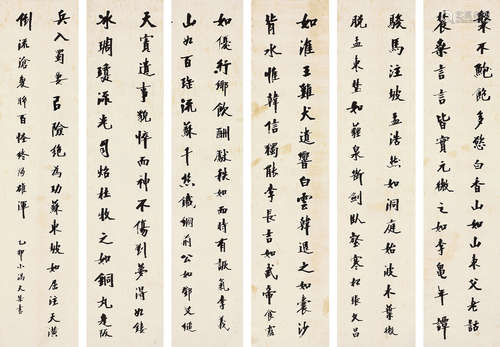 粲不鮑能多愁白香山如山東父老話
農桑言言皆實元微之如李龜年譚
駿馬注坡孟浩然如洞庭始波木葉微
脫孟東埜如薶泉斷劍臥壑寒松張文昌
如淮王雞犬遺響白雲韓退之如囊沙
背水惟韓信獨能李長吉如武帝食露
如優行鄉飲酬獻秩如而時有詼氣李義
山如百珤流蘇千絲鐵網前公如鄧艾縋
天寶遺事貌悴而神不傷劉夢得如鏤
冰琱瓊流光自炤杜牧之如銅丸走阪
兵入蜀要以險絕為功蘇東坡如屈注天潢
倒流滄百怪終歸雄渾
乙卯小滿天書